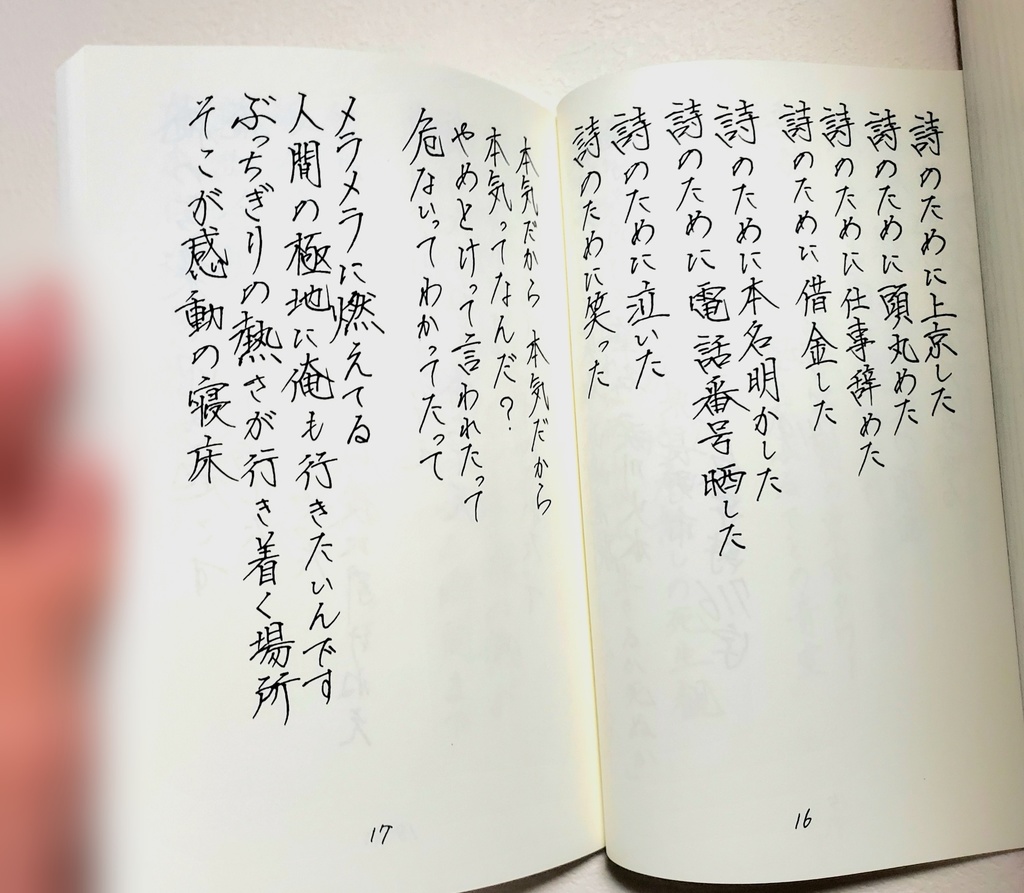 詩のために上京した
詩のために頭丸めた
詩のために仕事辞めた
詩のために借金した
詩のために本名明かした
詩のために電話番号晒した
詩のために泣いた
詩のために笑った
16
本気だから 本気だから
本気ってなんだ？
やめとけって言われたって
危ないってわかってたって
メラメラに燃えてる
人間の極地に俺も行きたいんです
ぶっちぎりの熱さが行き着く場所
そこが感動の寝床
17